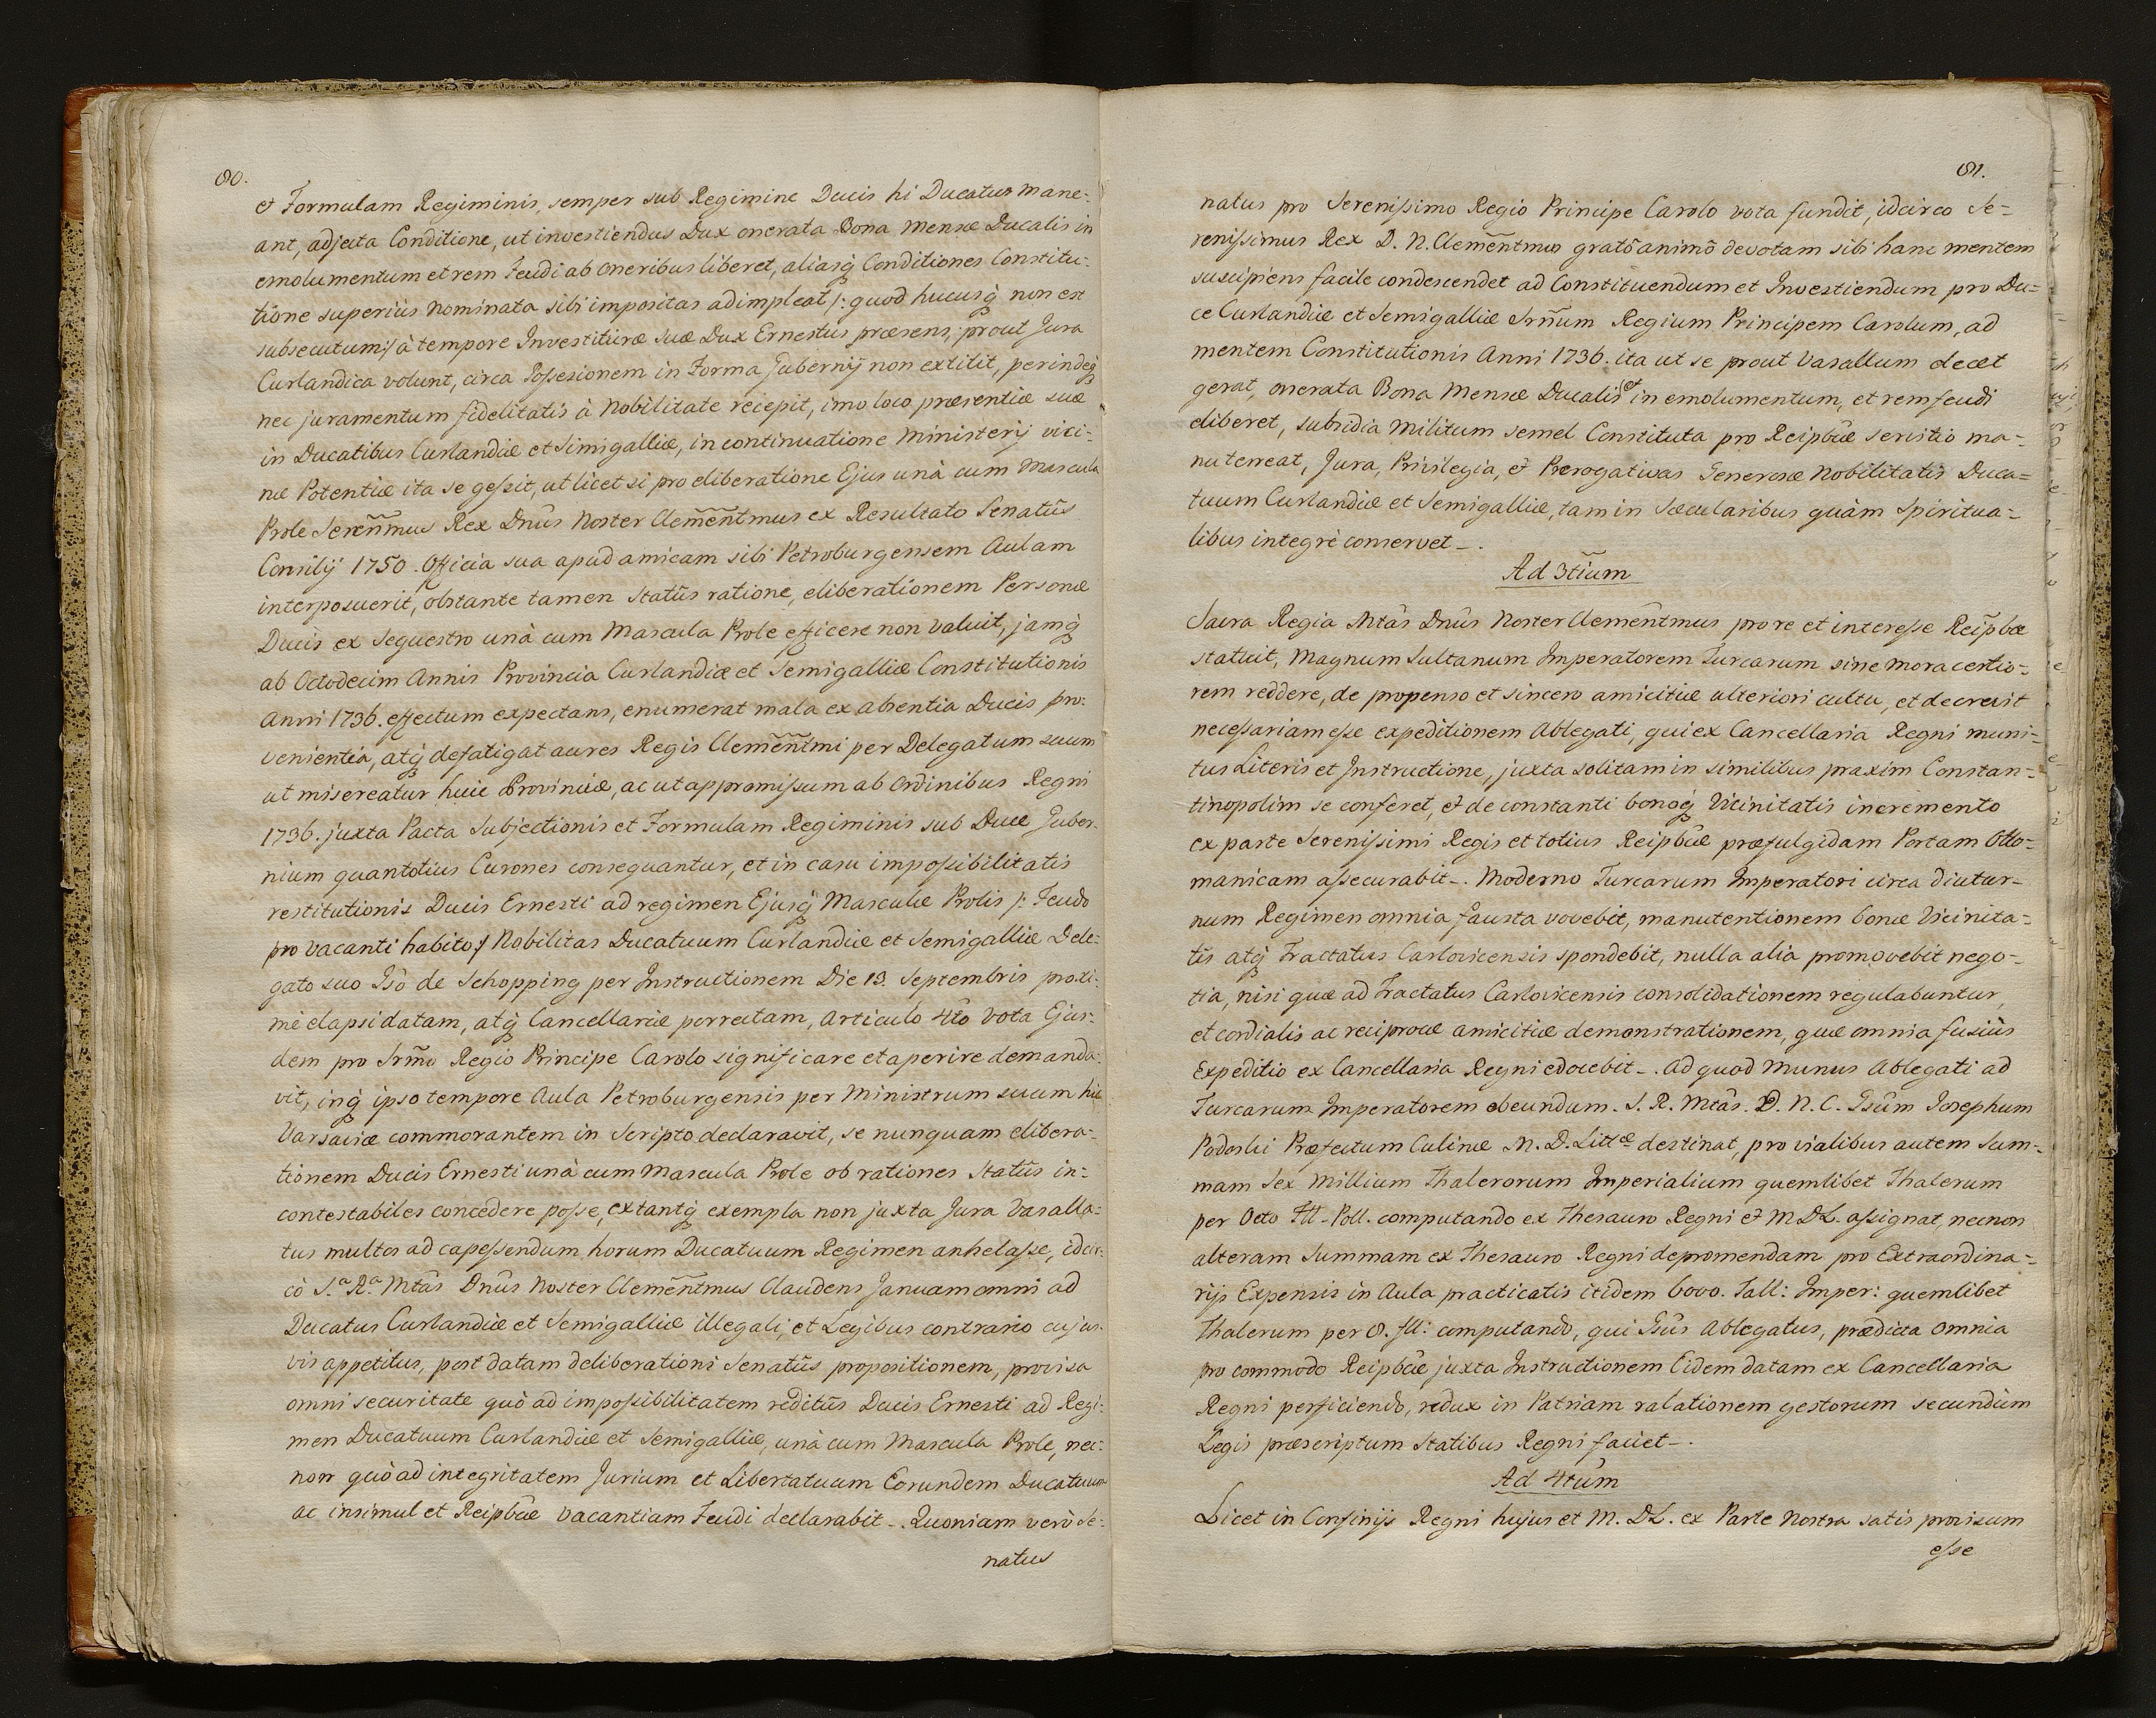 80.
et Formulam Regiminis, semper sub Regimine Ducis hi Ducatus mane-
ant, adjecta Conditione, ut investiendus Dux onerata Bona mensæ Ducalis in
emolumentum et rem feudi ab oneribus liberet, aliasq́ Conditiones Constitu-
tione superiùs nominata sibi impositas adimpleat /: quod hucusq́ non est
subsecutum :/ à tempore Investituræ suæ Dux Ernestus præsens, prout Jura
Curlandica volunt, circa Possesionem in Forma Gubernij non extitit, perindeq́
nec juramentum fidelitatis à Nobilitate recepit, imo loco præsentiæ suæ
in Ducatibus Curlandiæ et Simigalliæ, in continuatione Ministerij vici-
næ Potentiæ ita se gessit, ut licet si pro eliberatione Ejus unà cum Mascula
Prole Sereñmus Rex Dnûs Noster Clemeñtmus ex Resultato Senatûs
Consilij 1750. Officia sua apud amicam sibi Petroburgensem Aulam
interposuerit, obstante tamen statûs ratione, eliberationem Personæ
Ducis ex Sequestro unà cum Mascula Prole efficere non valuit, jamq́
ab Octodecim Annis Provincia Curlandiæ et Semigalliæ Constitutionis
Anni 1736. effectum expectans, enumerat mala ex absentia Ducis pro-
venientia, atq́ defatigat aures Regis Clemeñtmi per Delegatum suum
ut misereatur huic Provinciæ, ac ut appromissum ab Ordinibus Regni
1736. juxta Pacta Subjectionis et Formulam Regiminis sub Duce Guber-
nium quantotius Curones consequantur, et in casu impossibilitatis
restitutionis Ducis Ernesti ad regimen Ejusq́ Masculæ Prolis /: Feudo
pro vacanti habito :/ Nobilitas Ducatuum Curlandiæ et Semigalliæ Dele-
gato suo Gsô de Schopping per Instructionem Die 13. Septembris proxi-
mè elapsi datam, atq́ Cancellariæ porrectam, Articulo 4tô vota Ejus-
dem pro Srm̃o Regio Principe Carolo significare et aperire demanda-
vit, inq́ ipso tempore Aula Petroburgensis per Ministrum suum hic
Varsaviæ commorantem in Scripto declaravit, se nunquam elibera-
tionem Ducis Ernesti unà cum Mascula Prole ob rationes Statûs in-
contestabiles concedere posse, extantq́ exempla non juxta Jura Vasalla-
tus multos ad capessendum horum Ducatuum Regimen anhelasse, idcir-
cò S.ª R.ª Mtâs Dnûs Noster Clemeñtmus Claudens Januam omni ad
Ducatus Curlandiæ et Semigalliæ illegali, et Legibus contrario cujus-
vis appetitus, post datam deliberationi Senatûs propositionem, provisa
omni securitate quò ad impossibilitatem reditûs Ducis Ernesti ad Regi-
men Ducatuum Curlandiæ et Semigalliæ, unà cum Mascula Prole, nec-
non quò ad integritatem Jurium et Libertatuum Eorundem Ducatuum
ac insimul et Reipbûæ vacantiam Feudi declarabit -. Quoniam verò Se-
natus
81.
natus pro Serenissimo Regio Principe Carolo vota fundit, idcirco Se-
renissimus Rex D. N. Clemeñtmus gratô animô devotam sibi hanc mentem
suscipiens facile condescendet ad Constituendum et Investiendum pro Du-
ce Curlandiæ et Semigalliæ Srñum Regium Principem Carolum, ad
mentem Constitutionis Anni 1736. ita ut se prout Vasallum decet
gerat, onerata Bona Mensæ Ducalis et in emolumentum, et rem feudi
eliberet, subsidia militum semel Constituta pro Reipbûæ servitio ma-
nuteneat, Jura, Privilegia, et Prerogativas Generosæ Nobilitatis Duca-
tuum Curlandiæ et Semigalliæ, tam in Sæcularibus quàm Spiritua-
libus integrè conservet -.
Ad 3tium
Sacra Regia Mtâs Dnûs Noster Clemeñtmus pro re et interesse Reipbæ
statuit, Magnum Sultanum Imperatorem Turcarum sine mora certio-
rem reddere, de propenso et sincero amicitiæ ulteriori cultu, et decrevit
necessariam esse expeditionem Ablegati, qui ex Cancellaria Regni muni-
tus Literis et Instructione, juxta solitam in similibus praxim Constan-
tinopolim se conferet, et de constanti bonoq́ Vicinitatis incremento
ex parte Serenissimi Regis et totius Reipbûæ præfulgidam Portam Otto-
manicam assecurabit -. Moderno Turcarum Imperatori circa diutur-
num Regimen omnia fausta vovebit, manutentionem bonæ Vicinita-
tis atq́ Tractatus Carlovicensis spondebit, nulla alia promovebit nego-
tia, nisi quæ ad Tractatus Carlovicensis consolidationem regulabuntur,
et cordialis ac reciprocæ amicitiæ demonstrationem, quæ omnia fusiùs
Expeditio ex Cancellaria Regni edocebit -. Ad quod Munus Ablegati ad
Turcarum Imperatorem obeundum. S. R. Mtâs. D. N. C. Gsûm Josephum
Podoski Præfectum Culinæ M. D. Littæ destinat, pro vialibus autem Sum-
mam Sex Millium Thalerorum Imperialium quemlibet Thalerum
per Octo Fll-Poll. computando ex Thesauro Regni et M DL. assignat, necnon
alteram Summam ex Thesauro Regni depromendam pro Extraordina-
rijs Expensis in Aula practicatis itidem 6000. Tall: Imper: quemlibet
Thalerum per 8. fll: computando, qui Gsûs Ablegatus, prædicta omnia
pro commodo Reipbûæ juxta Instructionem Eidem datam ex Cancellaria
Regni perficiendo, redux in Patriam ralationem gestorum secundùm
Legis præscriptum Statibus Regni faciet -.
Ad 4tûm
Licet in Confinijs Regni hujus et M. DL. ex Parte Nostra satis provisum
esse